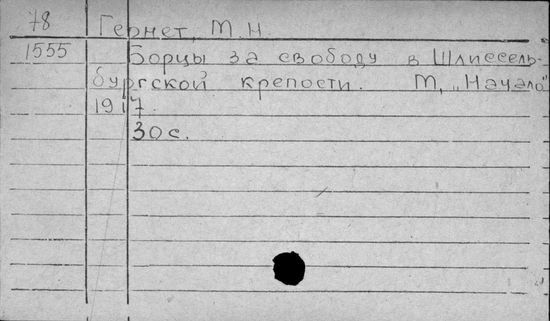 78 Гернет, М.Н.
1555 Борцы за свободу в Шлиссель-
бургской крепости. М, „Начало"
1917.
30 с.